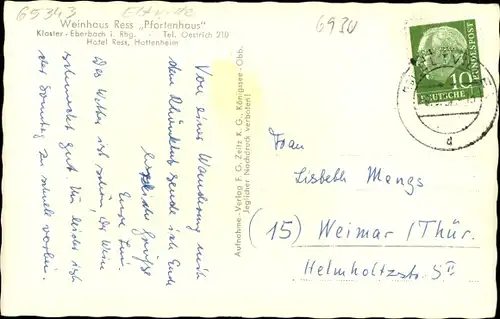 65343 Eltville
6930
Weinhaus Ress „Pfortenhaus"
Kloster-Eberbach i. Rhg. · Tel. Oestrich 210
Hotel Ress, Hattenheim
Von einer Wanderung nach
dem Rheintal sende ich Euch
herzliche Grüße
Eure
Das Wetter ist schön, der Wein
schmeckt gut. Nur leider ist
der Sonntag zu schnell vorbei.
Aufnahme-Verlag F. G. Zeitz K. G., Königssee-Obb.
Jeglicher Nachdruck verboten!
DEUTSCHE BUNDESPOST
10
d
Frau
Lisbeth Mengs
(15) Weimar / Thür.
Helmholtzstr. 5 II